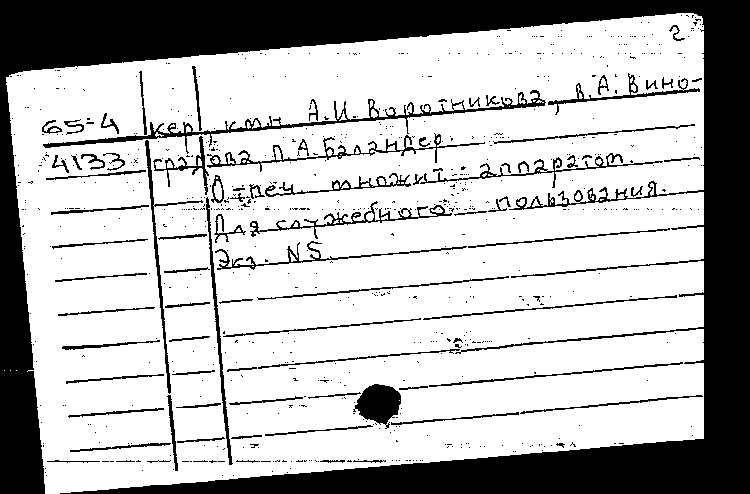 2
65-4 кер, кмн. А.И. Воротникова, В.А. Вино-
4133 градова, П.А. Баландер.
Отпеч. множит. аппаратом.
Для служебного пользования.
Экз. N5.